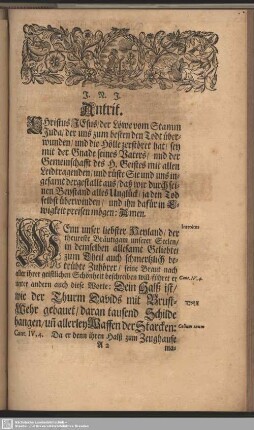 J. N. J.
Antrit.
CHristus JEsus/ der Löwe vom Stamm
Juda/ der uns zum besten den Todt über-
wunden/ und die Hölle zerstöret hat/ sey
mit der Gnade seines Vaters/ und der
Gemeinschafft des H. Geistes mit allen
Leidtragenden/ und rüste Sie und uns in-
gesamt dergestallt aus/ daß wir durch sei-
nen Beystand alles Unglück/ ja den Tod
selbst überwunden/ und ihn dafür in E-
wigkeit preisen mögen: Amen.
WEnn unser liebster Heyland/ der
theureste Bräutgam unserer Seelen/
in denselben allesamt Geliebte
zum Theil auch schmertzlich be-
trübte Zuhörer/ seine Braut nach
aller ihrer geistlichen Schönheit beschreiben will/ führet er
unter andern auch diese Worte: Dein Halß ist/
Cant. IV, 4.
wie der Thurm Davids mit Brust-
Wehr gebauet/ daran tausend Schilde
hangen/ uñ allerley Waffen der Starcken:
Cant. IV, 4. Da er denn ihren Halß zum Zeughause
A 2
ma-